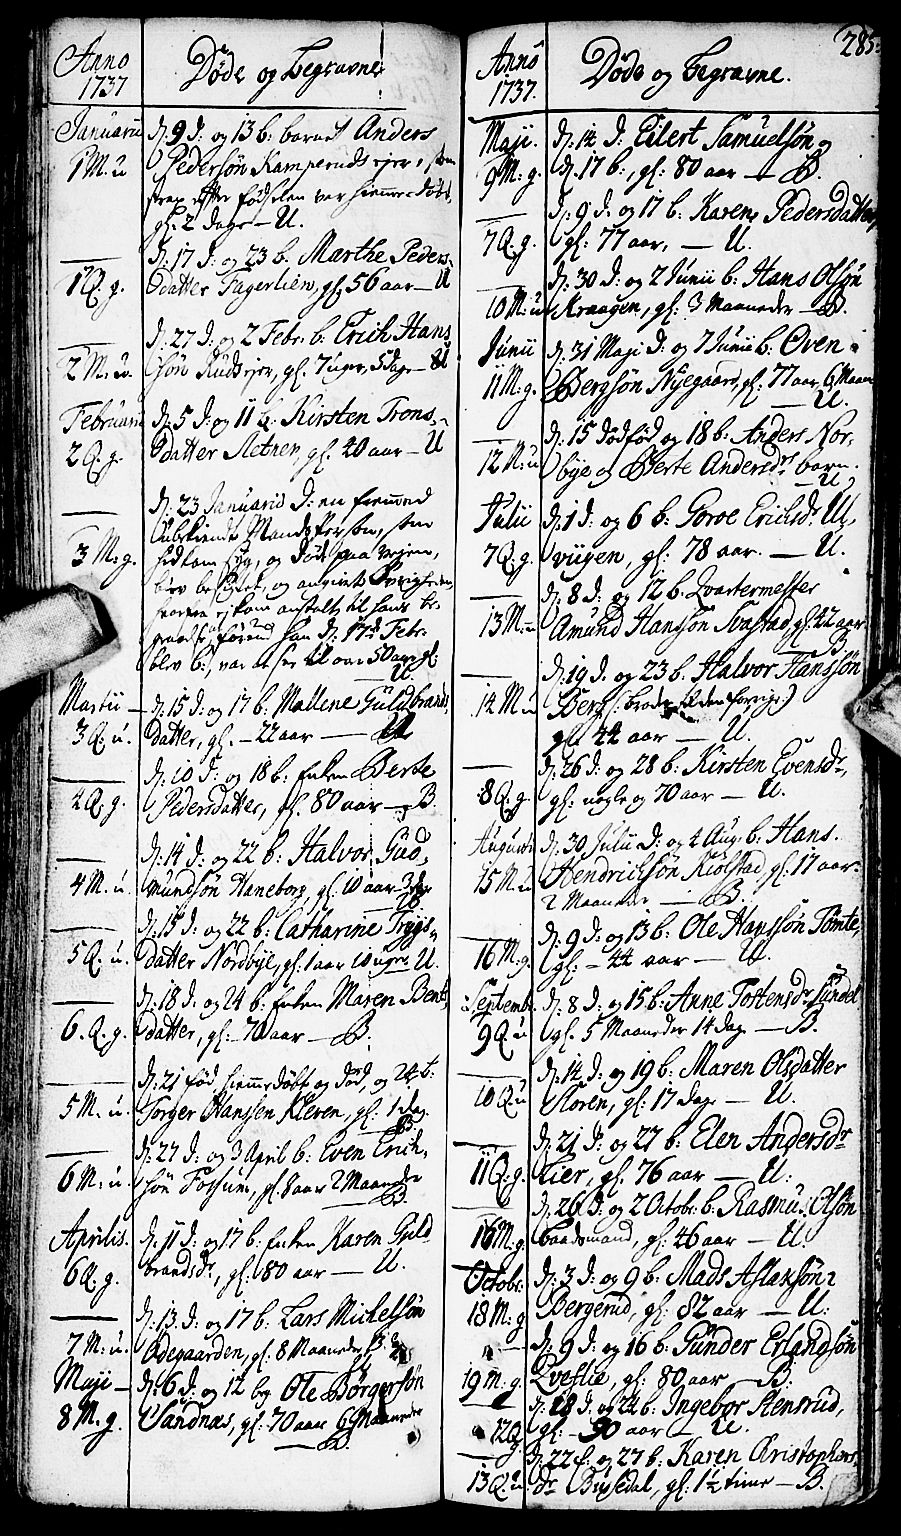 Anno
1737
Døde og Begravne
Januarii
1 M: u
d: 9 d: og 13 b: barnet Anders
Pedersøn Kamperuds ejer, som
strax efter fødselen var hiemmedøbt,
gl: 2 dage — U.
1 Q: g.
d: 17 d: og 23 b: Marthe Peders-
datter Fagerlien, gl: 56 aar — U
2 M: u.
d: 27 d: og 2 Febr: b: Erich Hans
søn Rudsejer, gl: 7 uger, 5 dage — U
Februarii
2 Q: g.
d: 5 d: og 11 b: Kirsten Trons-
datter Aetnen, gl: 40 aar — U
3 M: g.
d: 23 Januarii d: en fremmed
Mandsperson, som
hidkom syg, og døde paa vejen,
blev og Øvrigheden,
kom anstalt til hans be-
førend han d: 17 d: Febr:
blev b:, var at see til over 50 aar gl:
U.
Martii —
3 Q: u.
d: 15 d: og 17 b: Mallene Guldbrands
datter, gl: — 22 aar — U
4 Q: g.
d: 10 d: og 18 b: Enken Berte
Pedersdatter, gl: 80 aar — B.
4 M: u.
d: 14 d: og 22 b: Halvor Gud-
mundsøn Haneborg, gl: 10 aar 3 dage
5 Q: u.
d: 15 d: og 22 b: Catharine Trygs-
datter Nordbye, gl: 1 aar 10 uger U.
6. Q: g.
d: 18 d: og 24 b: Enken Maren Bents
datter, gl: — 70 aar — B.
5 M: u.
d: 21 fød, hiemmedøbt og død, og 24 b:
Torger Hanssen Kleven, gl: 1 dag.
B.
6 M: u
d: 27 d: og 3 April b: Even Erich-
søn Fossum, gl: 8 aar 2 Maaneder
B
Aprilis.
6 Q: g.
d: 11 d: og 17 b: Enken Karen Guld-
brandsdr, gl: 80 aar — U.
7 M: u.
d: 13 d: og 17 b: Lars Michelsøn
Ødegaarden, gl: 8 Maaneder
Maji —
8 M: g.
d: 6 d: og 12 beg Ole Børgersøn
Sandnæs, gl: 70 aar 6 Maaneder
B
Anno
1737.
Døde og Begravne.
285
Maji.
9 M: g.
d: 14 d: Eilert Samuelsøn og
d: 17 b:, gl: 80 aar — B.
7 Q: g.
d: 9 d: og 17 b: Karen Pedersdatter,
gl: 77 aar, — U.
10 M: u
d: 30 d: og 2 Junii b: Hans Olsøn
Kraagen, gl: 3 Maaneder — B.
Junii
11 M: g.
d: 31 Maji d: og 7 Junii b: Oven
Bergsøn Nyegaard, gl: 77 aar, 6 Maan
U.
12 M: u
d: 15 dødfød og 18 b: Anders Nor-
bye og Berte Andersdr barn.
U
Julii
7 Q: g
d: 1 d: og 6 b: Goroe Erichsdr Ul-
viigen, gl: 78 aar. — U.
13 M: u
d: 8 d: og 12 b: Qvartermester
Amund Hanssøn Svastad gl: 42 aar
B
14 M: u
d: 19 d: og 23 b: Halvor Hanssøn
Berg (: broder til den forrige :)
gl: 44 aar — U.
8 Q: g.
d: 26 d: og 28 b: Kirsten Evensdr,
gl: nogle og 70 aar — U.
Augusti
15 M: u
d: 30 Julii d: og 4 Aug: b: Hans
Hendrichsøn Kiølstad, gl: 17 aar
2 Maaneder — B.
16 M: g.
d: 9 d: og 13 b: Ole Hanssøn Tomte,
gl: — 44 aar — U.
Septembr:
9 Q: u
d: 8 d: og 15 b: Anne Tostensdr Sundet
gl: 5 Maaneder 14 dage — B.
10 Q: u
d: 14 d: og 19 b: Maren Olsdatter
Floren, gl: 17 dage — U.
11 Q: g.
d: 21 d: og 27 b: Elen Andersdr
Lier, gl: 76 aar — U.
16 M: g.
d: 26 d: og 2 Octobr: b: Rasmus Olsøn
baadsmand, gl: 46 aar — U.
Octobr:
18 M: g
d: 3 d: og 9 b: Mads Aslaksøn
Bergerud, gl: 82 aar — U:
19 M: g.
d: 9 d: og 16 b: Gunder Erlandsøn
Qvestie, gl: 80 aar — B.
12 Q: g.
d: 18 d: og 24 b: Ingebor Stensrud,
gl: — 90 aar — U.
13 Q: u.
d: 22 f: og 27 b: Karen Christophers
dr Busedal, gl: 1½ time — B.